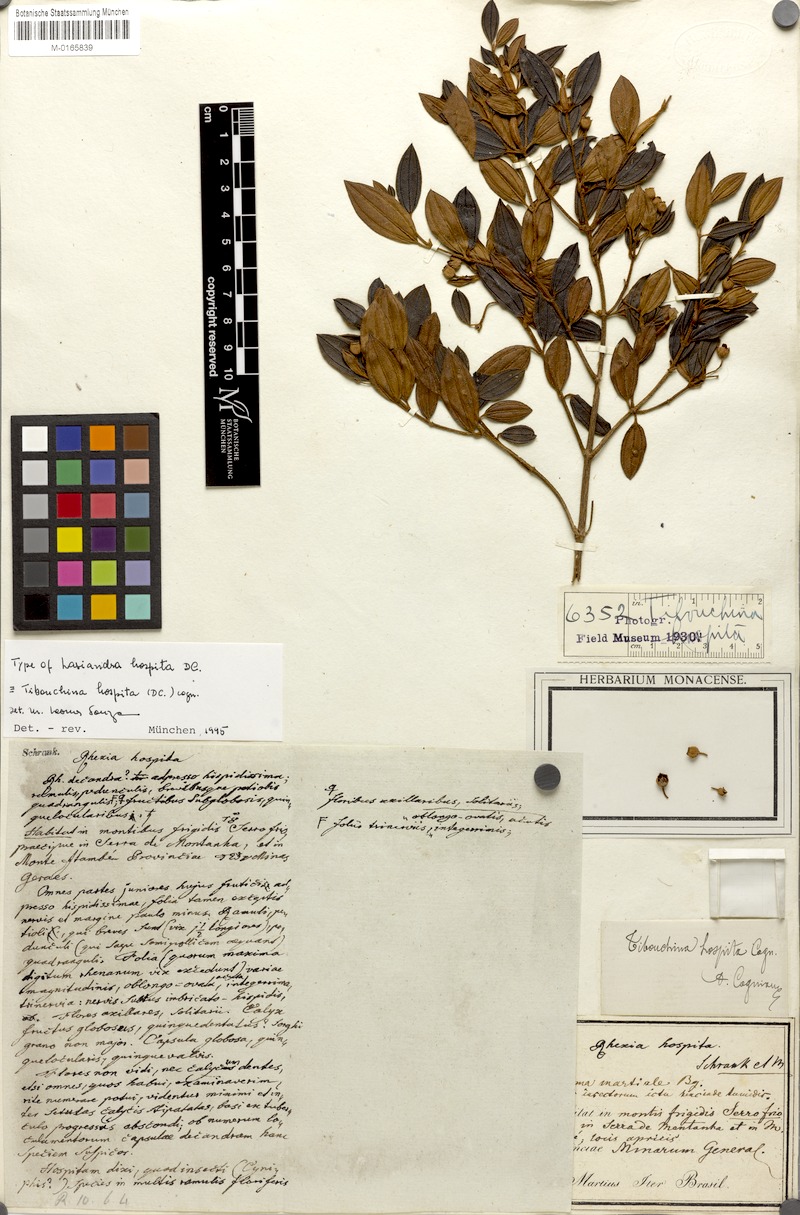 Botanische Staatssammlung München
M-0165839
cm
0 1 2 3 4 5 6 7 8 9 10
copyright reserved
BOTANISCHE
STAATSSAMMLUNG
MÜNCHEN
6352 Tibouchina
Photogr. hospita
Field Museum 1930.
Type of Lasiandra hospita DC.
≡ Tibouchina hospita (DC.) Cogn.
Det. - rev. München, 1995
HERBARIUM MONACENSE.
Schrank. Rhexia hospita
Rh. decandra? adpresso hispidissima;
ramulis, pedunculis, petiolis
quadrangulis; fructibus subglobosis, quin
quelocularibus.
Habitat in montibus frigidis Serro frio,
praecipue in Serra de Montanha, et in
Monte Itambé Provinciae
Geraes.
Omnes partes juniores hujus fruticis ad,
presso hispidissimae, folia tamen exceptis
nervis et margine paulo minus. Ramuli, pe,
tioli, qui breves sunt (vix longiores), pe,
dunculi (qui saepe semipollicem aequant)
quadranguli. Folia (quorum maxima
digitum rhenanum vix excedunt) variae
magnitudinis, oblongo-ovata, acuta, integerrima,
trinervia: nervis subtus imbricato-hispidis,
Flores axillares, solitarii. Calyx
fructus globosus, quinquedentatus: Sorghi
grano non major. Capsula globosa, quin,
quelocularis, quinquevalvis.
Flores non vidi, nec calycis dentes,
etsi omnes, quos habui, examinaverim,
rite numerare potui, videntur minimi et in,
ter setulas calycis stipatatas, basi extuber,
culo progressas abscondi; ob numerum lo,
culamentorum capsulae decandram hanc
speciem suspicor.
Hospitam dixi, quod insecti (Cyni,
phis?) species in multis ramulis floriferis
floribus axillaribus, solitariis;
oblongo-ovatis, acutis
F foliis trinerviis, integerrimis;
Tibouchina hospita Cogn.
A. Cogniaux
Rhexia hospita.
Schrank et M
ma martiale Bg.
insectorum ictu
itat in montis frigidis Serro frio
in Serra de Montanha et in M
, locis apricis
nciae Minarum General.
Martius Iter Brasil.